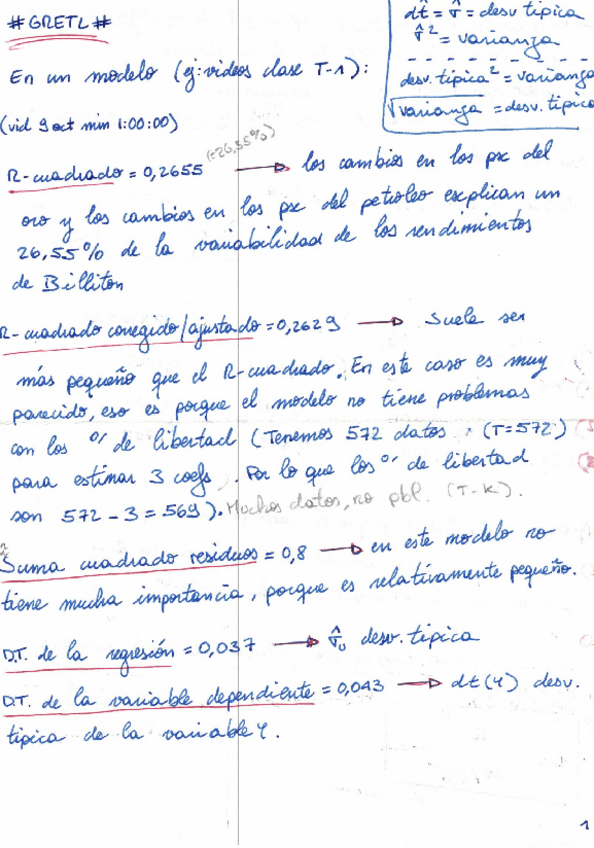 #GRETL#
dt̂ = σ̂ = desv típica
σ̂² = varianza
desv. típica² = varianza
√varianza = desv. típica
En un modelo (ej: videos clase T-1):
(vid 9 oct min 1:00:00)
R-cuadrado = 0,2655 (=26,55%) → los cambios en los px del
oro y los cambios en los px del petroleo explican un
26,55% de la variabilidad de los rendimientos
de Billiton
R-cuadrado corregido/ajustado = 0,2629 → Suele ser
más pequeño que el R-cuadrado. En este caso es muy
parecido, eso es porque el modelo no tiene problemas
con los º/ de libertad (Tenemos 572 datos (T=572)
para estimar 3 coefs. Por lo que los º/ de libertad
son 572 - 3 = 569). Muchos datos, no pbl. (T-K).
Suma cuadrado residuos = 0,8 → en este modelo no
tiene mucha importancia, porque es relativamente pequeño.
D.T. de la regresión = 0,037 → σ̂u desv. típica
D.T. de la variable dependiente = 0,043 → dt(Y) desv.
típica de la variable Y.
1